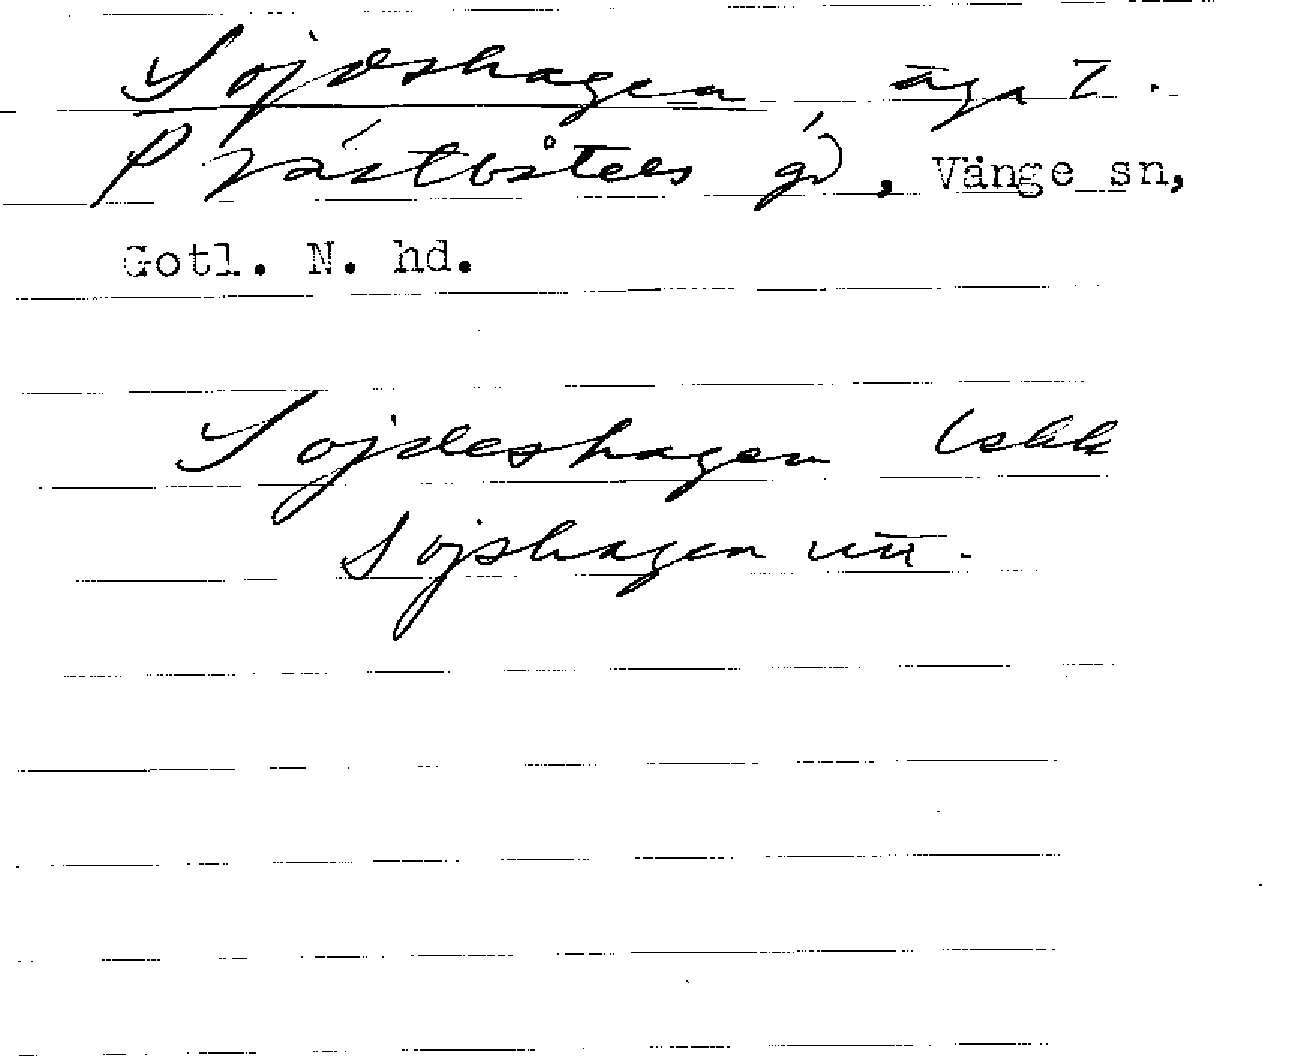 Sojdshagen äga 7.
P Västbåtels gd, Vänge sn,
Gotl. N. hd.
Sojdeshagen lskk
Sojshagen utt.